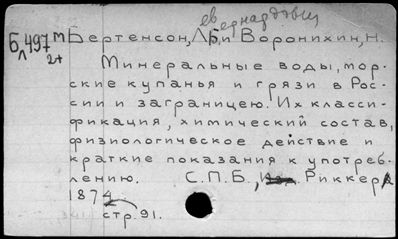 евернардович
Б 497 м Бертенсон, Л.Б. и Воронихин, Н.
л 2+
Минеральные воды, мор-
ские купанья и грязи в Рос-
сии и заграницею. Их класси-
фикация, химический состав,
физиологическое действие и
краткие показания к употреб-
лению. С.П.Б., Изд. Риккера
1874
стр. 91.